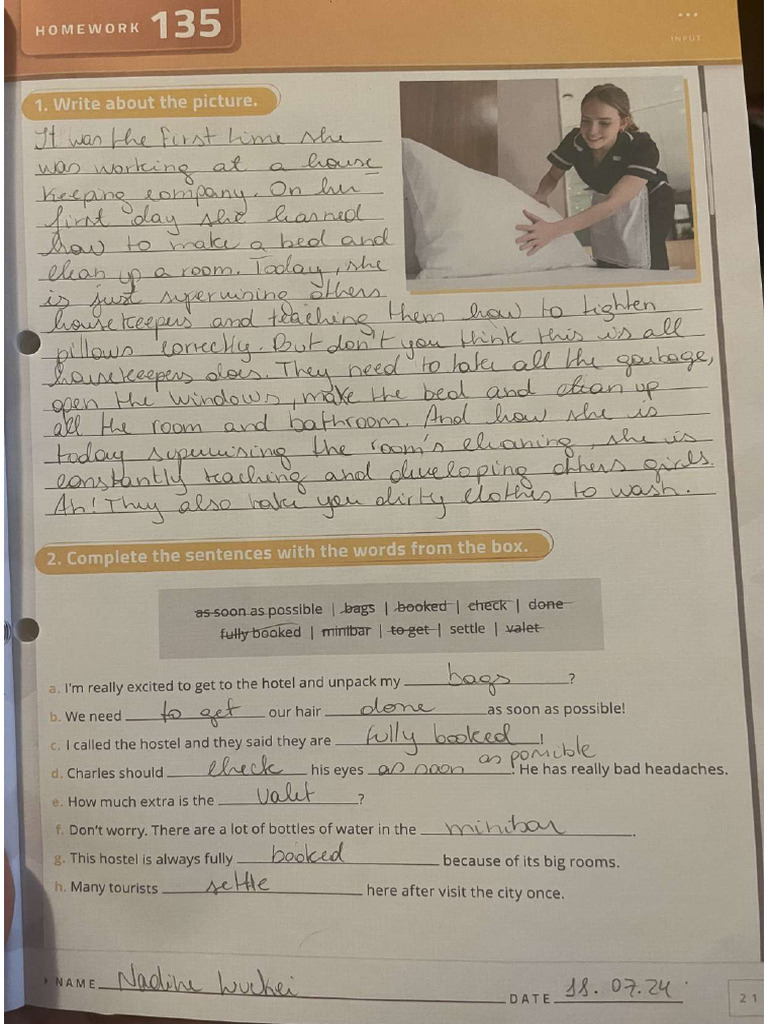 HOMEWORK 135
INPUT
1. Write about the picture.
It was the first time she
was working at a house
keeping company. On her
first day she learned
how to make a bed and
clean up a room. Today, she
is just supervining others
housekeepers and teaching them how to tighten
pillows correctly. But don't you think this is all
housekeepers does. They need to take all the gaubage,
open the windows, make the bed and clean up
all the room and bathroom. And how she is
today supervising the room's cleaning, she is
constantly teaching and developing others girls.
Ah! They also take you dirty clothes to wash.
2. Complete the sentences with the words from the box.
as soon as possible | bags | booked | check | done
fully booked | minibar | to get | settle | valet
a. I'm really excited to get to the hotel and unpack my bags ?
b. We need to get our hair done as soon as possible!
c. I called the hostel and they said they are fully booked !
d. Charles should check his eyes as soon as possible . He has really bad headaches.
e. How much extra is the valet ?
f. Don't worry. There are a lot of bottles of water in the minibar .
g. This hostel is always fully booked because of its big rooms.
h. Many tourists settle here after visit the city once.
NAME Nadine
DATE 18.07.24
21